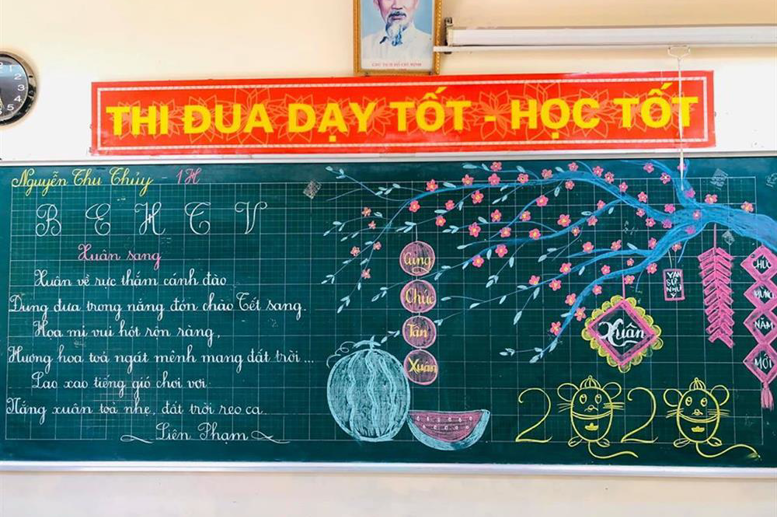 CHỦ TỊCH HỒ CHÍ MINH
THI ĐUA DẠY TỐT - HỌC TỐT
Nguyễn Thu Thủy 1H
B E H T V
Xuân sang
Xuân về rực thắm cánh đào
Đung đưa trong nắng đón chào Tết sang.
Hoạ mi vui hót rộn ràng,
Hương hoa toả ngát mênh mang đất trời...
Lao xao tiếng gió chơi vơi
Nắng xuân toả nhẹ, đất trời reo ca.
Liên Phạm
Cung
Chúc
Tân
Xuân
VẠN
SỰ
NHƯ
Ý
Xuân
CHÚC
MỪNG
NĂM
MỚI
2020